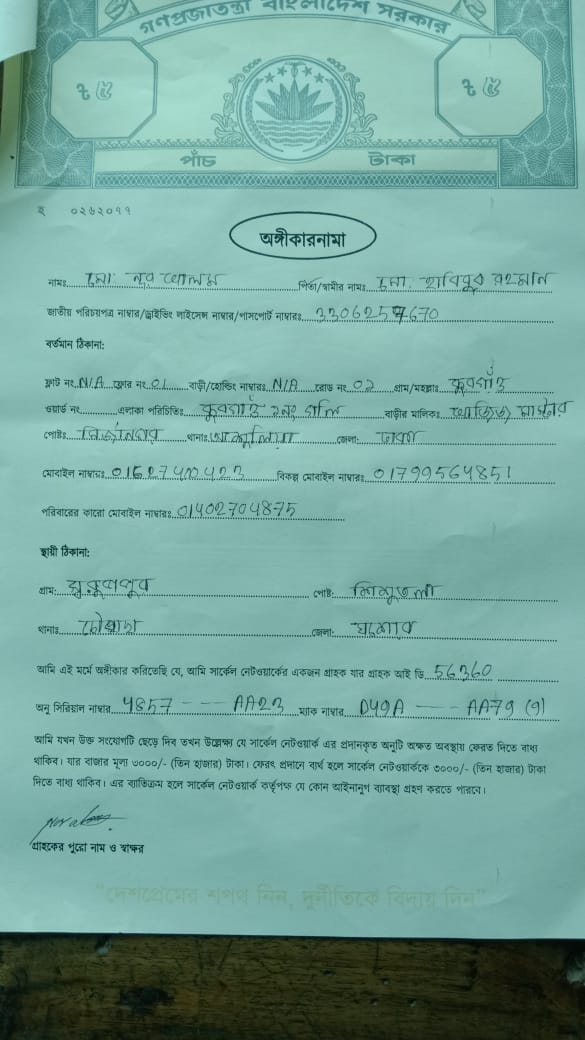 গণপ্রজাতন্ত্রী বাংলাদেশ সরকার
৳ ৫ ৳ ৫
পাঁচ টাকা
হ ০২৬২০৭৭
অঙ্গীকারনামা
নামঃ মো. নুর আলম পিতা/স্বামীর নামঃ মো. হাবিবুর রহমান
জাতীয় পরিচয়পত্র নাম্বার/ড্রাইভিং লাইসেন্স নাম্বার/পাসপোর্ট নাম্বারঃ 3306257670
বর্তমান ঠিকানা:
ফ্লাট নং N/A ফ্লোর নং 01 বাড়ী/হোল্ডিং নাম্বারঃ N/A রোড নং 02 গ্রাম/মহল্লাঃ কুরগাঁও
ওয়ার্ড নং এলাকা পরিচিতিঃ কুরগাঁও ২নং গলি বাড়ীর মালিকঃ মাস্টার
পোষ্টঃ থানাঃ আশুলিয়া জেলা: ঢাকা
মোবাইল নাম্বারঃ বিকল্প মোবাইল নাম্বারঃ 01799564851
পরিবারের কারো মোবাইল নাম্বারঃ 01402704875
স্থায়ী ঠিকানা:
গ্রাম: মুকুন্দপুর পোষ্ট:
থানাঃ চৌগাছা জেলা: যশোর
আমি এই মর্মে অঙ্গীকার করিতেছি যে, আমি সার্কেল নেটওয়ার্কের একজন গ্রাহক যার গ্রাহক আই ডি 56360
অনু সিরিয়াল নাম্বার 4857 --- AA23 ম্যাক নাম্বার D49A --- AA79 (9)
আমি যখন উক্ত সংযোগটি ছেড়ে দিব তখন উল্লেক্ষ্য যে সার্কেল নেটওয়ার্ক এর প্রদানকৃত অনুটি অক্ষত অবস্থায় ফেরত দিতে বাধ্য
থাকিব। যার বাজার মূল্য ৩০০০/- (তিন হাজার) টাকা। ফেরৎ প্রদানে ব্যর্থ হলে সার্কেল নেটওয়ার্ককে ৩০০০/- (তিন হাজার) টাকা
দিতে বাধ্য থাকিব। এর ব্যতিক্রম হলে সার্কেল নেটওয়ার্ক কর্তৃপক্ষ যে কোন আইনানুগ ব্যবস্থা গ্রহণ করতে পারবে।
গ্রাহকের পুরো নাম ও স্বাক্ষর
"দেশপ্রেমের শপথ নিন, দুর্নীতিকে বিদায় দিন"